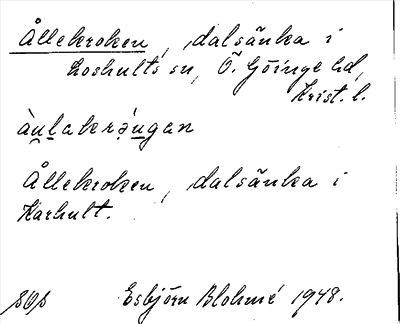 Ållekroken, dalsänka i
Loshults sn, Ö. Göinge hd,
Krist. l.
àu̲l̲akrə̀u̲ngan
Ållekroken, dalsänka i
Karhult.
Esbjörn Blohmé 1948.